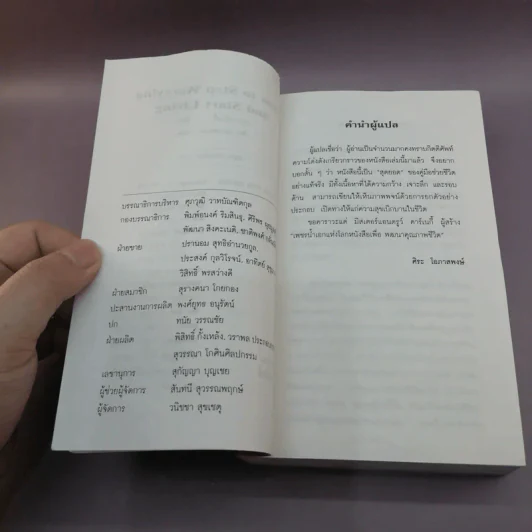 How to Stop Worrying
and Start Living
บรรณาธิการบริหาร ศุภวุฒิ วาทบัณฑิตกุล
กองบรรณาธิการ พิมพ์อนงค์ ริมสินธุ, ศิริพร
พัฒนา สิงคะเนติ, ชาติพงศ์
ฝ่ายขาย ปรานอม สุทธิอำนวยกูล,
ประสงค์ กุลวิโรจน์, อาทิตย์
วิสิทธิ์ พรสว่างดี
ฝ่ายสมาชิก สุรางคนา โกยกอง
ประสานงานการผลิต พงศ์ยุทธ อนุรัตน์
ปก ทนัย วรรณชัย
ฝ่ายผลิต พิสิทธิ์ กั้งเหลัง, วราพล
สุวรรณา โกสินศิลปกรรม
เลขานุการ สุกัญญา บุญเชย
ผู้ช่วยผู้จัดการ สันทนี สุวรรณพฤกษ์
ผู้จัดการ วนิชชา สุขเชตุ
คำนำผู้แปล
ผู้แปลเชื่อว่า ผู้อ่านเป็นจำนวนมากคงทราบกิตติศัพท์
ความโด่งดังเกรียวกราวของหนังสือเล่มนี้มาแล้ว จึงอยาก
บอกสั้น ๆ ว่า หนังสือนี้เป็น "สุดยอด" ของคู่มือช่วยชีวิต
อย่างแท้จริง มีทั้งเนื้อหาที่ได้ความกว้าง เจาะลึก และรอบ
ด้าน สามารถเขียนให้เห็นภาพพจน์ด้วยการยกตัวอย่าง
ประกอบ เปิดทางให้แก่ความสุขเบิกบานในชีวิต
ขอคาราวะแด่ มิสเตอร์แอนดรูว์ คาร์เนกี้ ผู้สร้าง
"เพชรน้ำเอกแห่งโลกหนังสือเพื่อ พัฒนาคุณภาพชีวิต"
ศิระ โอภาสพงษ์